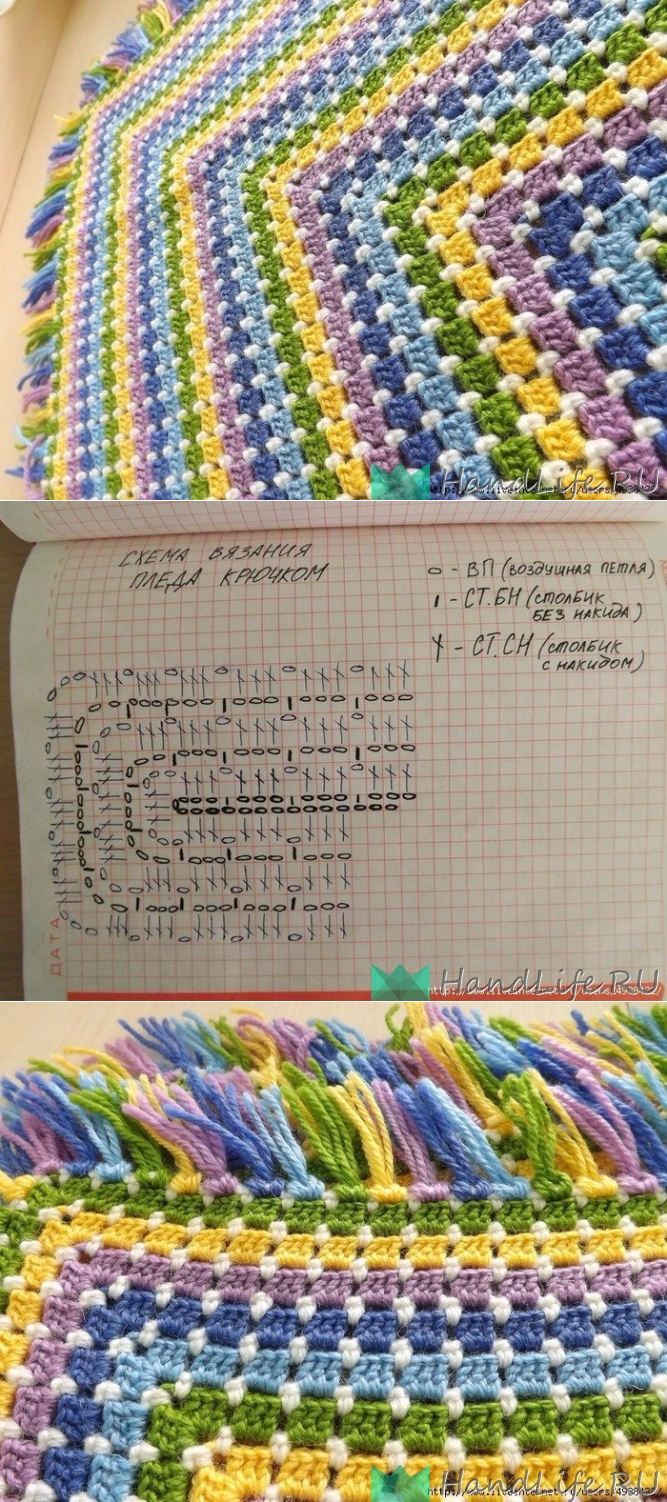 HandLife.RU
СХЕМА ВЯЗАНИЯ
ПЛЕДА КРЮЧКОМ
- ВП (ВОЗДУШНАЯ ПЕТЛЯ)
- СТ.БН (СТОЛБИК
БЕЗ НАКИДА)
- СТ.СН (СТОЛБИК
С НАКИДОМ)
ДАТА
HandLife.RU
HandLife.RU